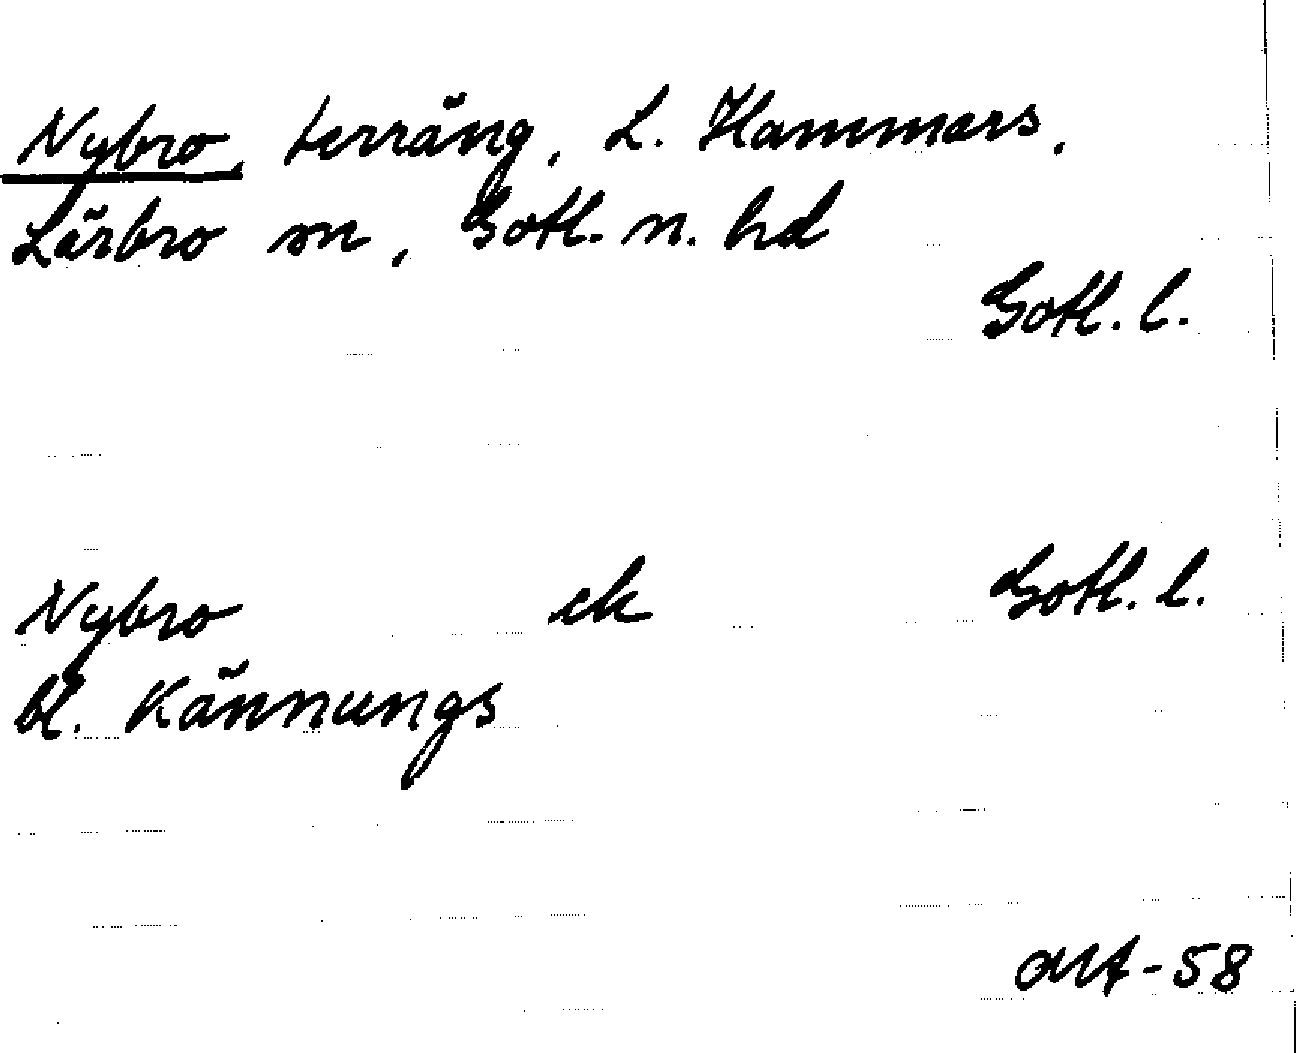 Nybro, terräng, L. Hammars,
Lärbro sn, Gotl. n. hd
Gotl. l.
Nybro ek Gotl. l.
bl. Kännungs
-58